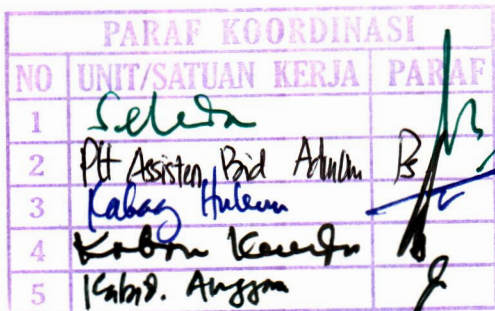 PARAF KOORDINASI
NO UNIT/SATUAN KERJA PARAF
1 Sekda
2 Plt Assisten Bid Admum
3 Kabag Hukum
4
5 Kabid. Anggran